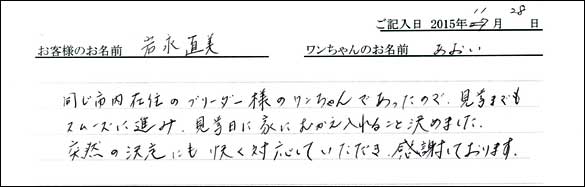 ご記入日 2015年 11月 28日
お客様のお名前 岩永 直美 ワンちゃんのお名前 あおい
同じ市内在住のブリーダー様のワンちゃんであったので、見学までも
スムーズに進み、見学日に家にむかえ入れること決めました。
突然の決定にも快く対応していただき、感謝しております。